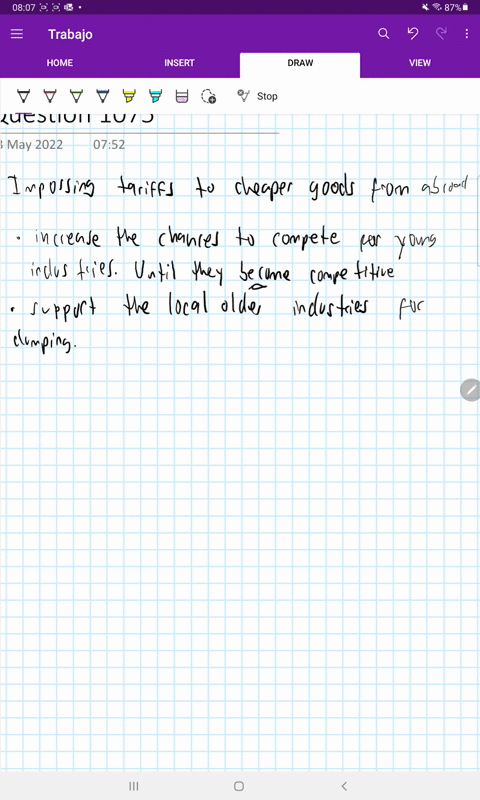 08:07 87%
Trabajo
HOME INSERT DRAW VIEW
Stop
Question 1075
May 2022 07:52
Impossing tariffs to cheaper goods from abroad
• increase the chances to compete for young
industries. Until they become competitive
• support the local older industries for
dumping.